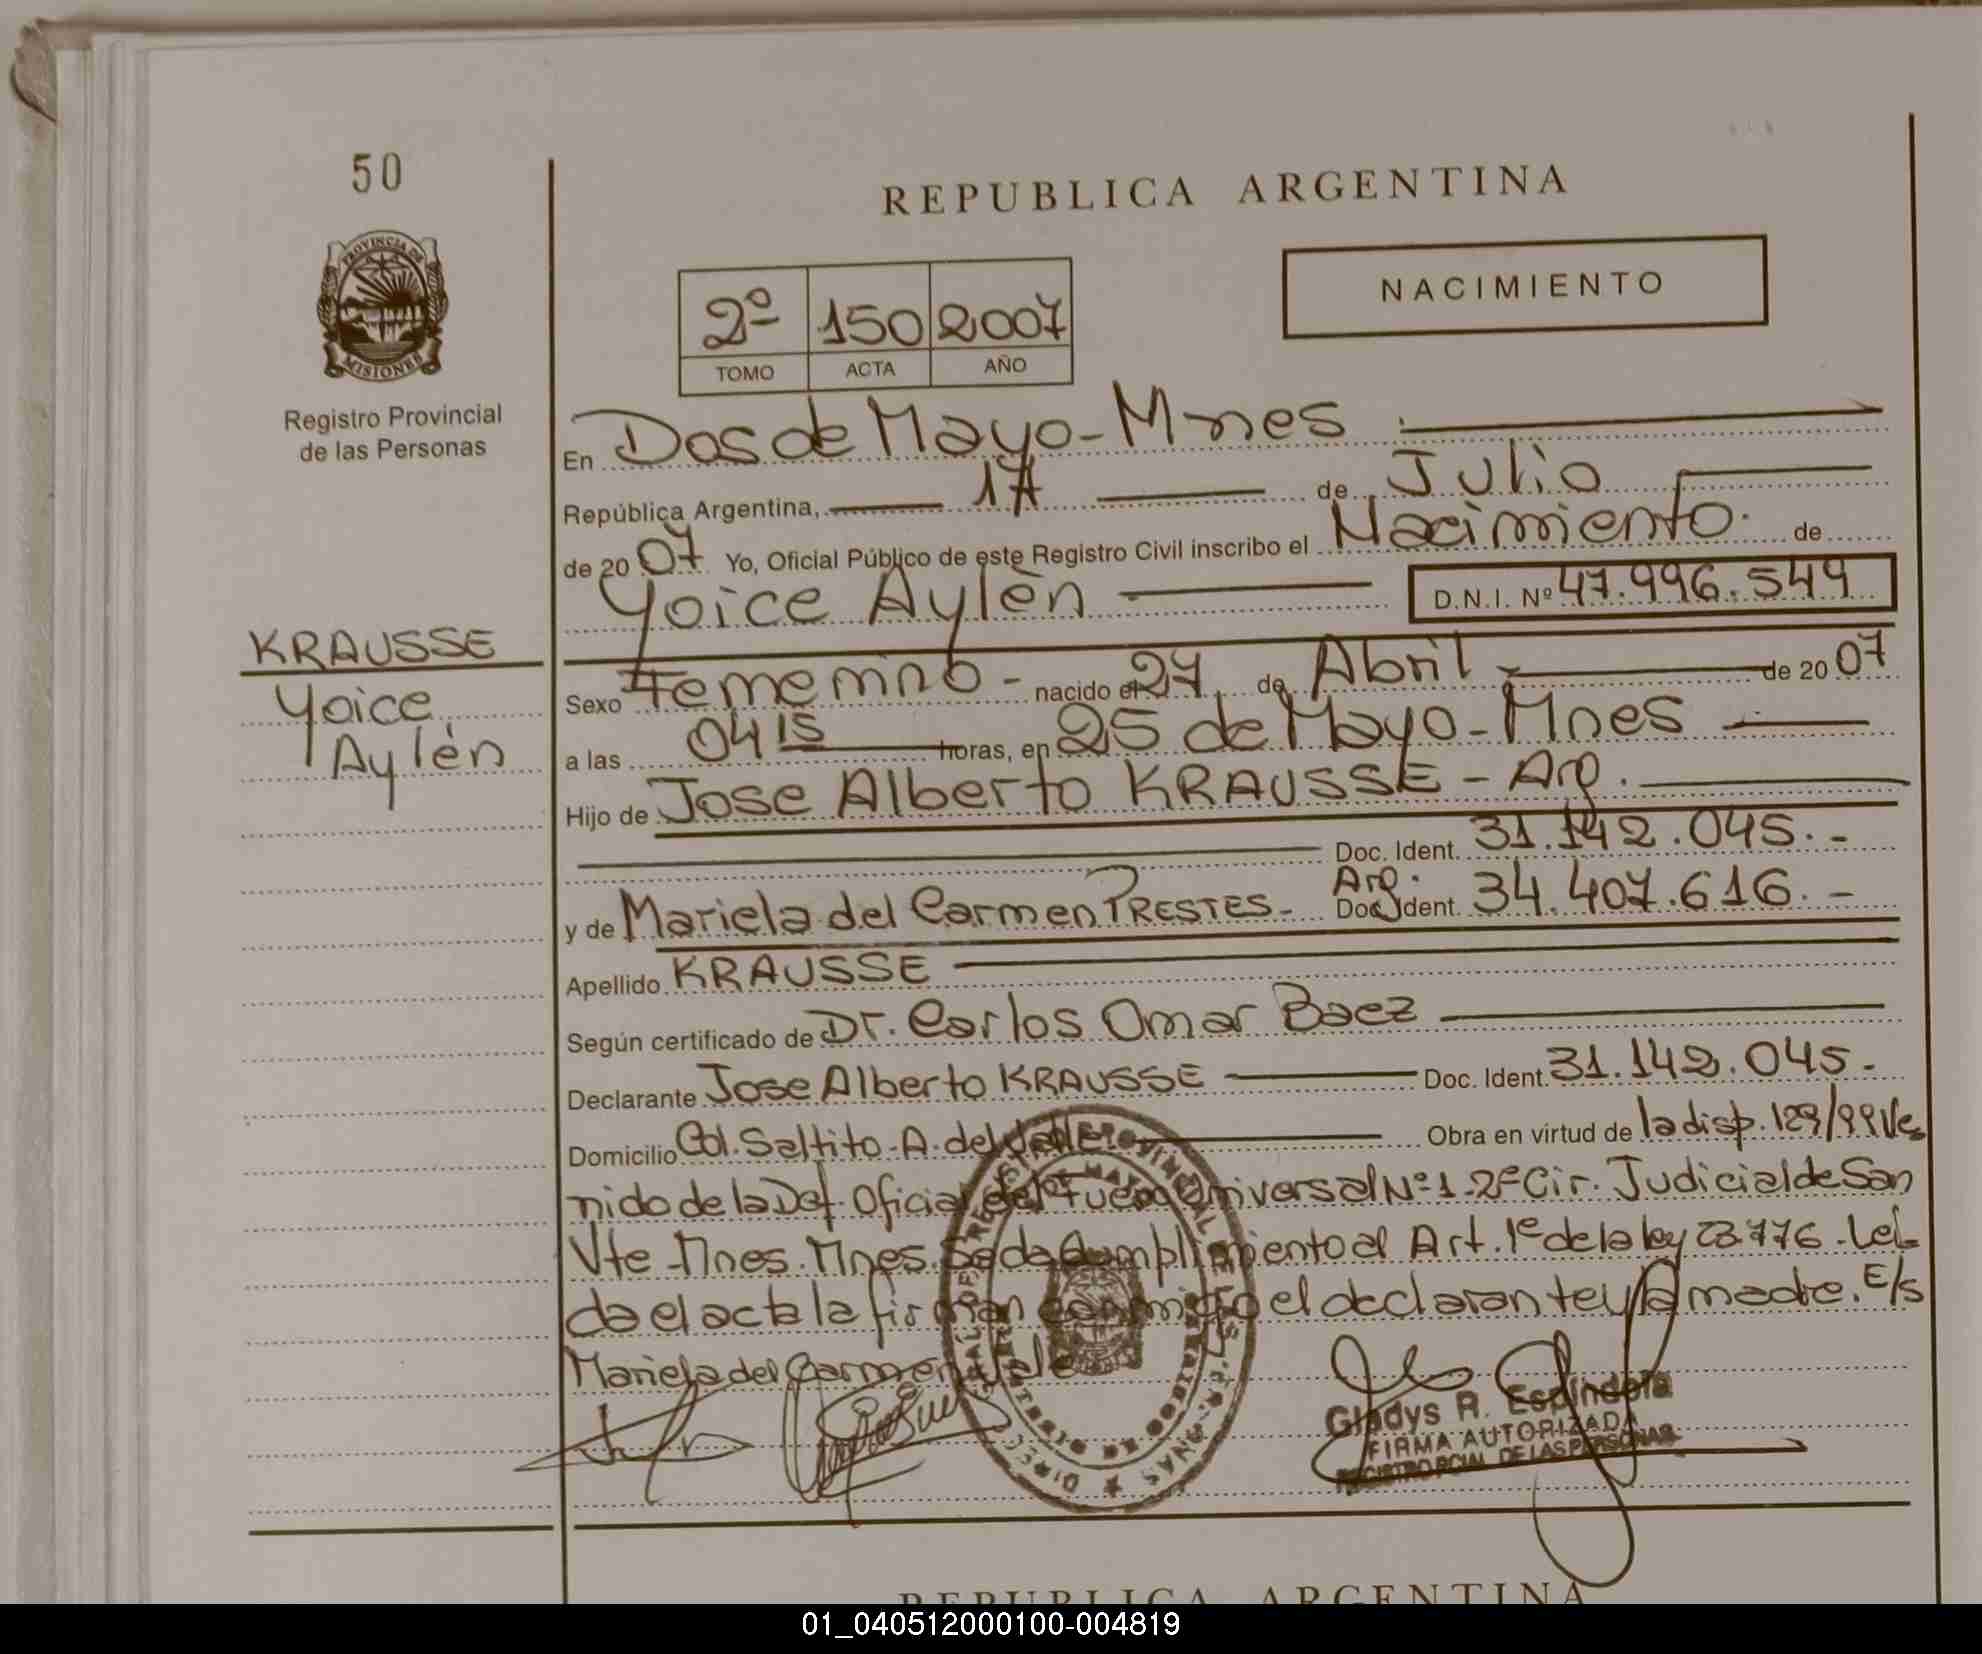 50
PROVINCIA DE
MISIONES
Registro Provincial
de las Personas
REPUBLICA ARGENTINA
NACIMIENTO
2º 150 2007
TOMO ACTA AÑO
En Dos de Mayo - Mnes
República Argentina, 17 de Julio
de 2007 Yo, Oficial Público de este Registro Civil inscribo el Nacimiento. de
Yoice Aylén D.N.I. Nº 47.996.549
KRAUSSE
Yoice
Aylén
Sexo Femenino - nacido el 27 de Abril de 2007
a las 04 15 horas, en 25 de Mayo - Mnes
Hijo de Jose Alberto KRAUSSE - Arg.
Doc. Ident. 31.142.045.-
Arg.
y de Mariela del Carmen PRESTES - Doc. Ident. 34.407.616.-
Apellido KRAUSSE
Según certificado de Dr. Carlos Omar Baez
Declarante Jose Alberto KRAUSSE Doc. Ident. 31.142.045.-
Domicilio Col. Saltito - A. del Valle Obra en virtud de la disp. 129/99 Ve
nido de la Def. Oficial del Fuero Universal Nº 1 - 2º Cir. Judicial de San
Vte - Mnes. Mnes. Se da Cumplimiento al Art. 1º de la ley 23.776 - Leí
da el acta la firman conmigo el declarante y la madre. E/s
Mariela del Carmen Vale
Gladys R. Espindola
FIRMA AUTORIZADA
REGISTRO PCIAL DE LAS PERSONAS
REPUBLICA ARGENTINA
01_040512000100-004819